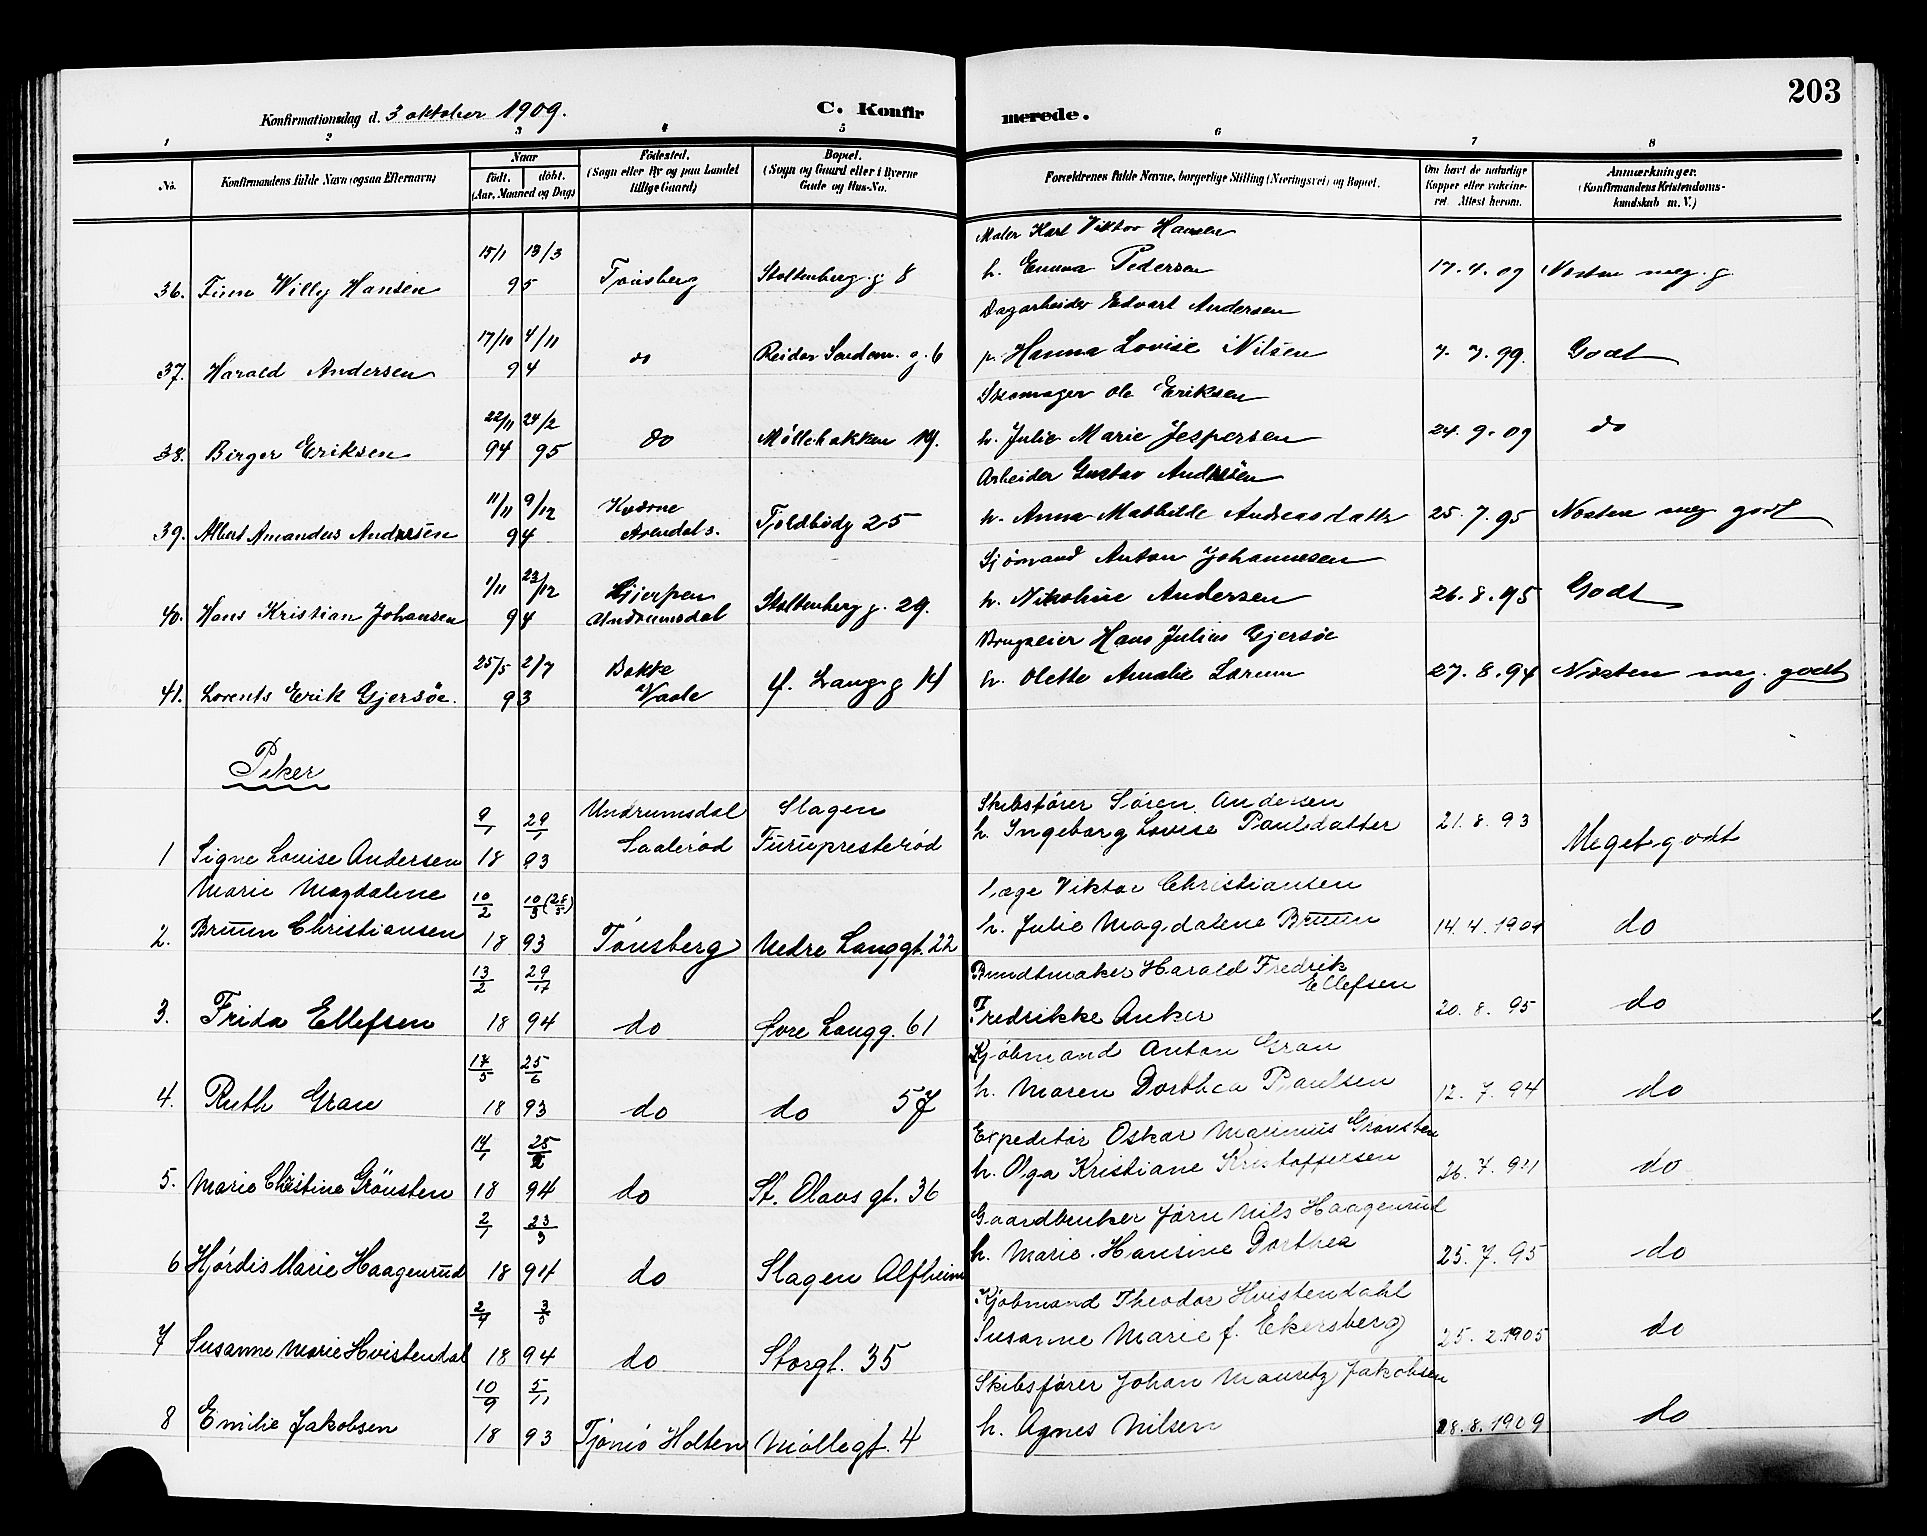 203
Konfirmationsdag d. 3 oktober 1909.
C. Konfir merede.
1 2 3 4 5 6 7 8
No. Konfirmandens fulde Navn (ogsaa Efternavn)
Naar født. døbt. (Aar, Maaned og Dag)
Fødested. (Sogn eller By og paa Landet tillige Gaard)
Bopæl. (Sogn og Gaard eller i Byerne Gade og Hus-No.
Forældrenes fulde Navne, borgerlige Stilling (Næringsvei) og Bopæl.
Om havt de naturlige Kopper eller vakcineret. Attest herom.
Anmærkninger. (Konfirmandens Kristendomskundskab m. V.)
Maler Karl Viktor Hansen
15/1 13/3
36. Finn Willy Hansen 95 Tønsberg Stoltenberg. g 8 h. Emma Pedersen 17.4.09 Næsten meg. g
Dagarbeider Edvart Andersen
17/10 4/11
37. Harald Andersen 94 do Reidar Sendem. g. 6 Hanna Lovise Nilsen 7.7.99. Godt
Skomager Ole Eriksen
22/11 24/2
38. Birger Eriksen 94 95 do Møllebakken 19. h. Julie Marie Jespersen 24.9.09 do
Arbeider Gustav Andresen
11/11 9/12
39. Albert Amandus Andresen 94 Arendal s. Tjoldbødg 25 h. Anna Mathilde Andreasdatter 25.7.95 Næsten meg godt
Sjømand Anton Johannesen
1/11 23/12
40. Hans Kristian Johansen 94 Gjerpen Undrumsdal Stoltenberg g. 29. h. Nikoline Andersen 26.8.95 Godt
Brugseier Hans Julius Gjersøe
25/5 2/7
41. Lorents Erik Gjersøe. 93 Bakke Vaale Langg 14 h. Olette Amalie Lorum 27.8.94 Næsten meg. godt
Piker
9/1 29/1 Undrumsdal Slagen Skibsfører Søren Andersen
1 Signe Louise Andersen 18 93 Saalerød Furupresterød h. Ingeborg Lovise Paulsdatter 21.8.93 Meget godt
Marie Magdalene 10/2 10/3 (28/5) Læge Viktor Christiansen
2. Bruun Christiansen 18 93 Tønsberg Nedre Langgt. 22 h. Julie Magdalene Bruun 14.4.1909 do
13/2 29/11 Bundtmaker Harald Fredrik Ellefsen
3. Frida Ellefsen 18 94 do Øvre Langg. 61 Fredrikke Anker 20.8.95 do
17/5 25/6 Kjøbmand Anton Grau
4. Ruth Grau 18 93 do do 57 h. Maren Dorthea Paulsen 12.7.94 do
14/1 25/2 Expeditør Oskar Marinius Grønsten
5. Marie Christine Grönsten 18 94 do St. Olavs gt. 36 h. Olga Kristiane Kristoffersen 26.7.94 do
2/1 23/3 Gaardbruker Jørn Nils Haagenrud
6 Hjørdis Marie Haagenrud 18 94 do Slagen Alfheim h. Marie Hansine Dorthea 25.7.95 do
2/4 3/5 Kjøbmand Theodor Hvistendahl
7 Susanne Marie Hvistendal 18 94 do Storgt. 35 Susanne Marie f. Ekersberg 25.2.1905 do
10/9 5/11 Skibsfører Johan Mauritz Jakobsen
8 Emilie Jakobsen 18 93 Tjømø Holten Møllegt. 4 h. Agnes Nilsen 18.8.1909 do